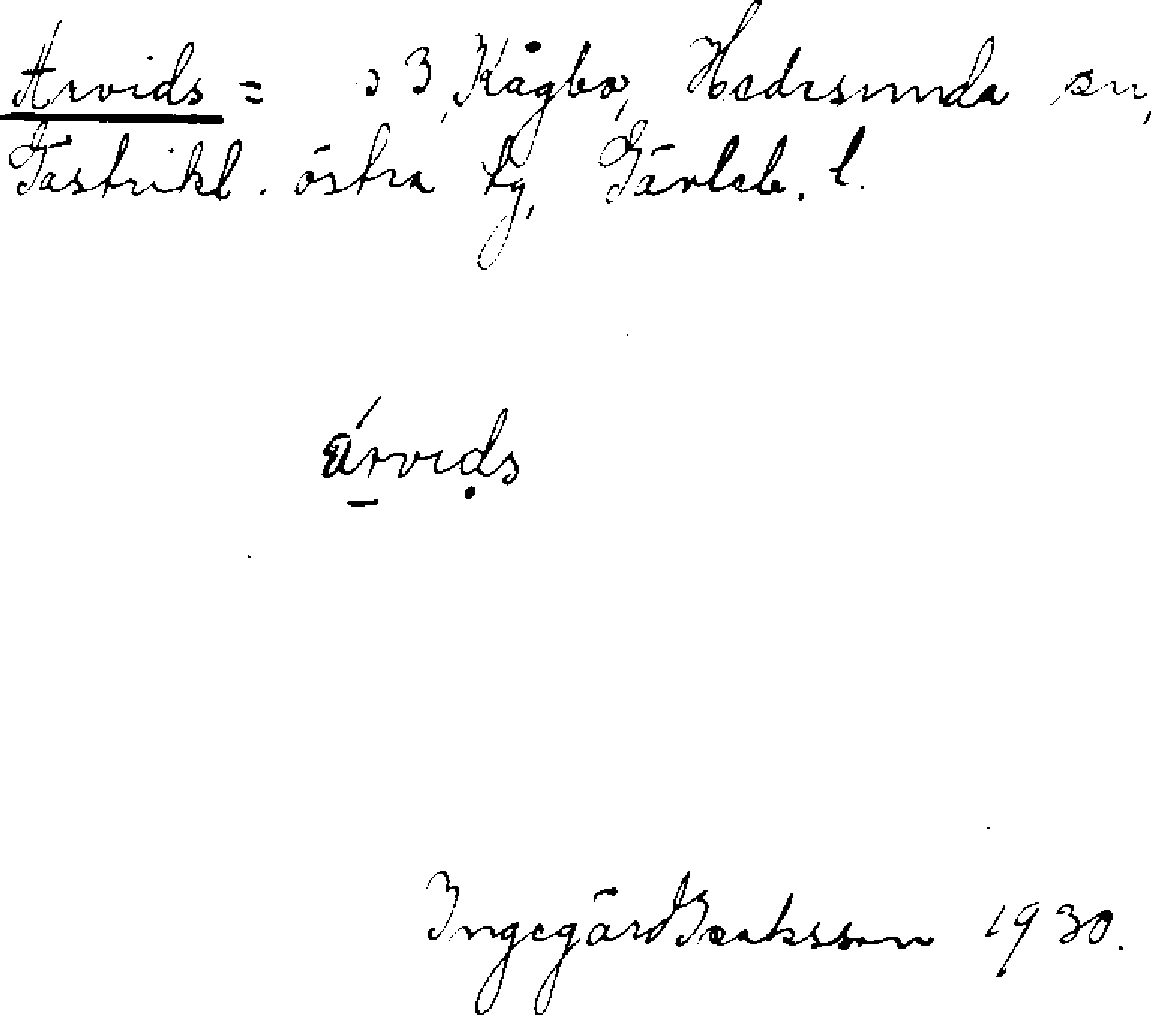 Arvids = 3, Kågbo, Hedesunda sn,
Gästrikl. östra tg, Gävleb. l.
árvids
Ingegärd Isaksson 1930.